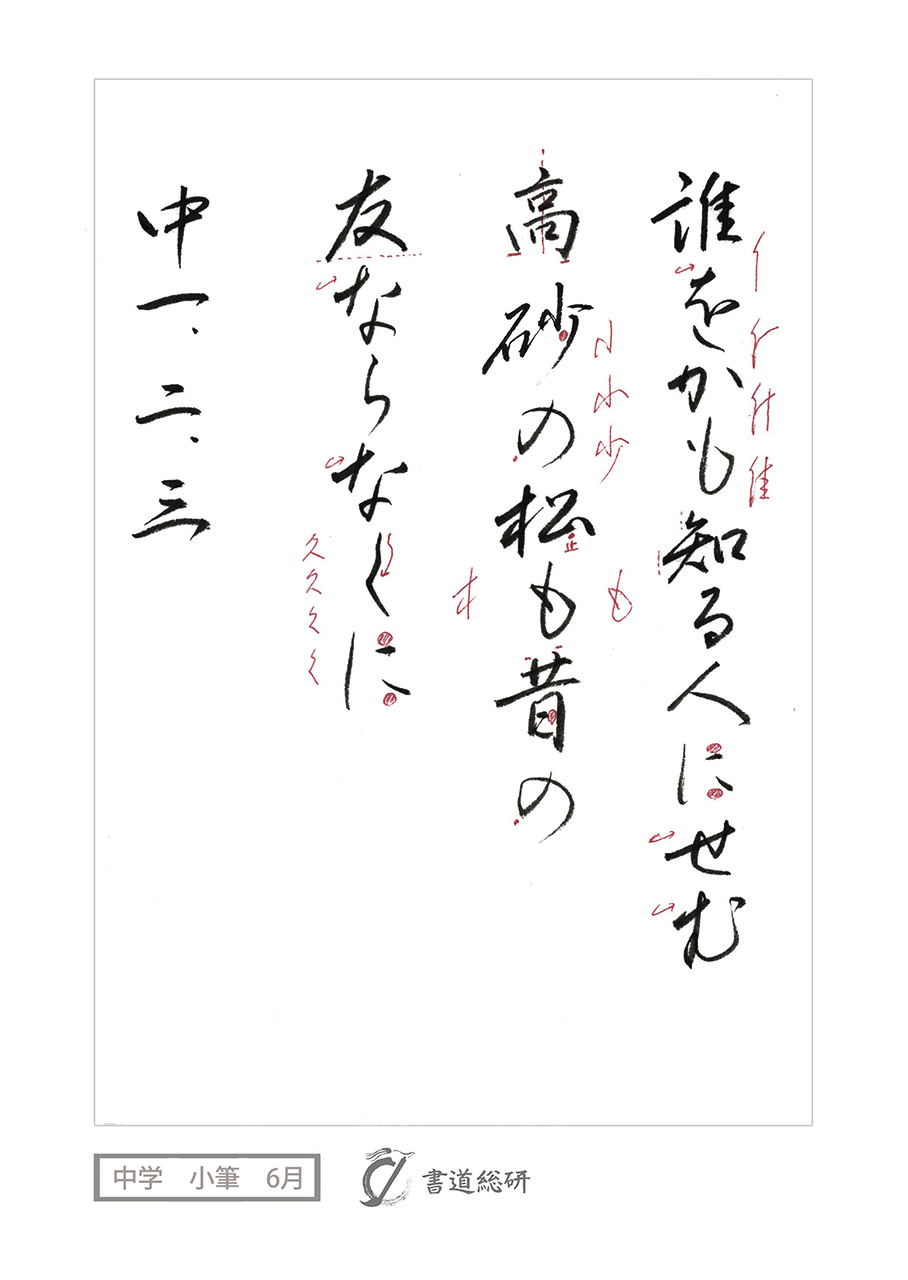 誰をかも知る人にせむ
高砂の松も昔の
友ならなくに
中一、二、三
イ
亻
什
隹
小
小
少
正
も
オ
久
久
く
く
中学 小筆 6月
書道総研